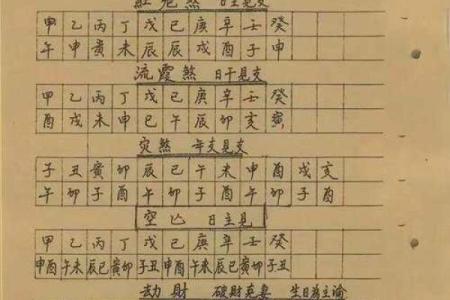 紅危煞 日主見支
甲乙丙丁戊己庚辛壬癸
午申寅未辰辰戌酉子申
流霞煞 日干見支
甲乙丙丁戊己庚辛壬癸
酉戌未申巳午辰卯亥寅
灾煞 年支見支
子丑寅卯辰巳午未申酉戌亥
午卯子酉午卯子酉午卯子酉
空亡 日主見
甲乙丙丁戊己庚辛壬癸
申酉午未辰巳寅卯子丑申酉午未辰巳寅卯子丑
劫財 破財克妻 生日為主論